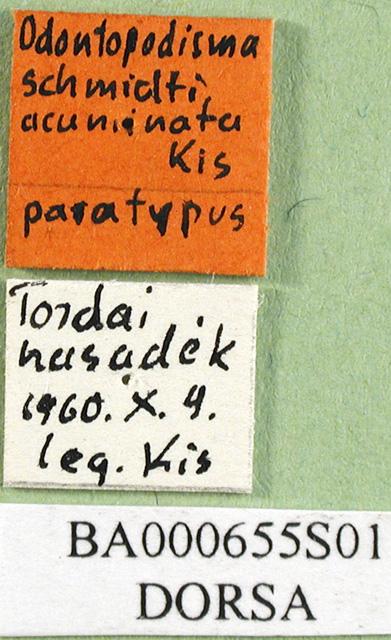 Odontopodisma
schmidti
acuminata
Kis
paratypus
Tordai
hasadék
1960. X. 4.
leg. Kis
BA000655S01
DORSA